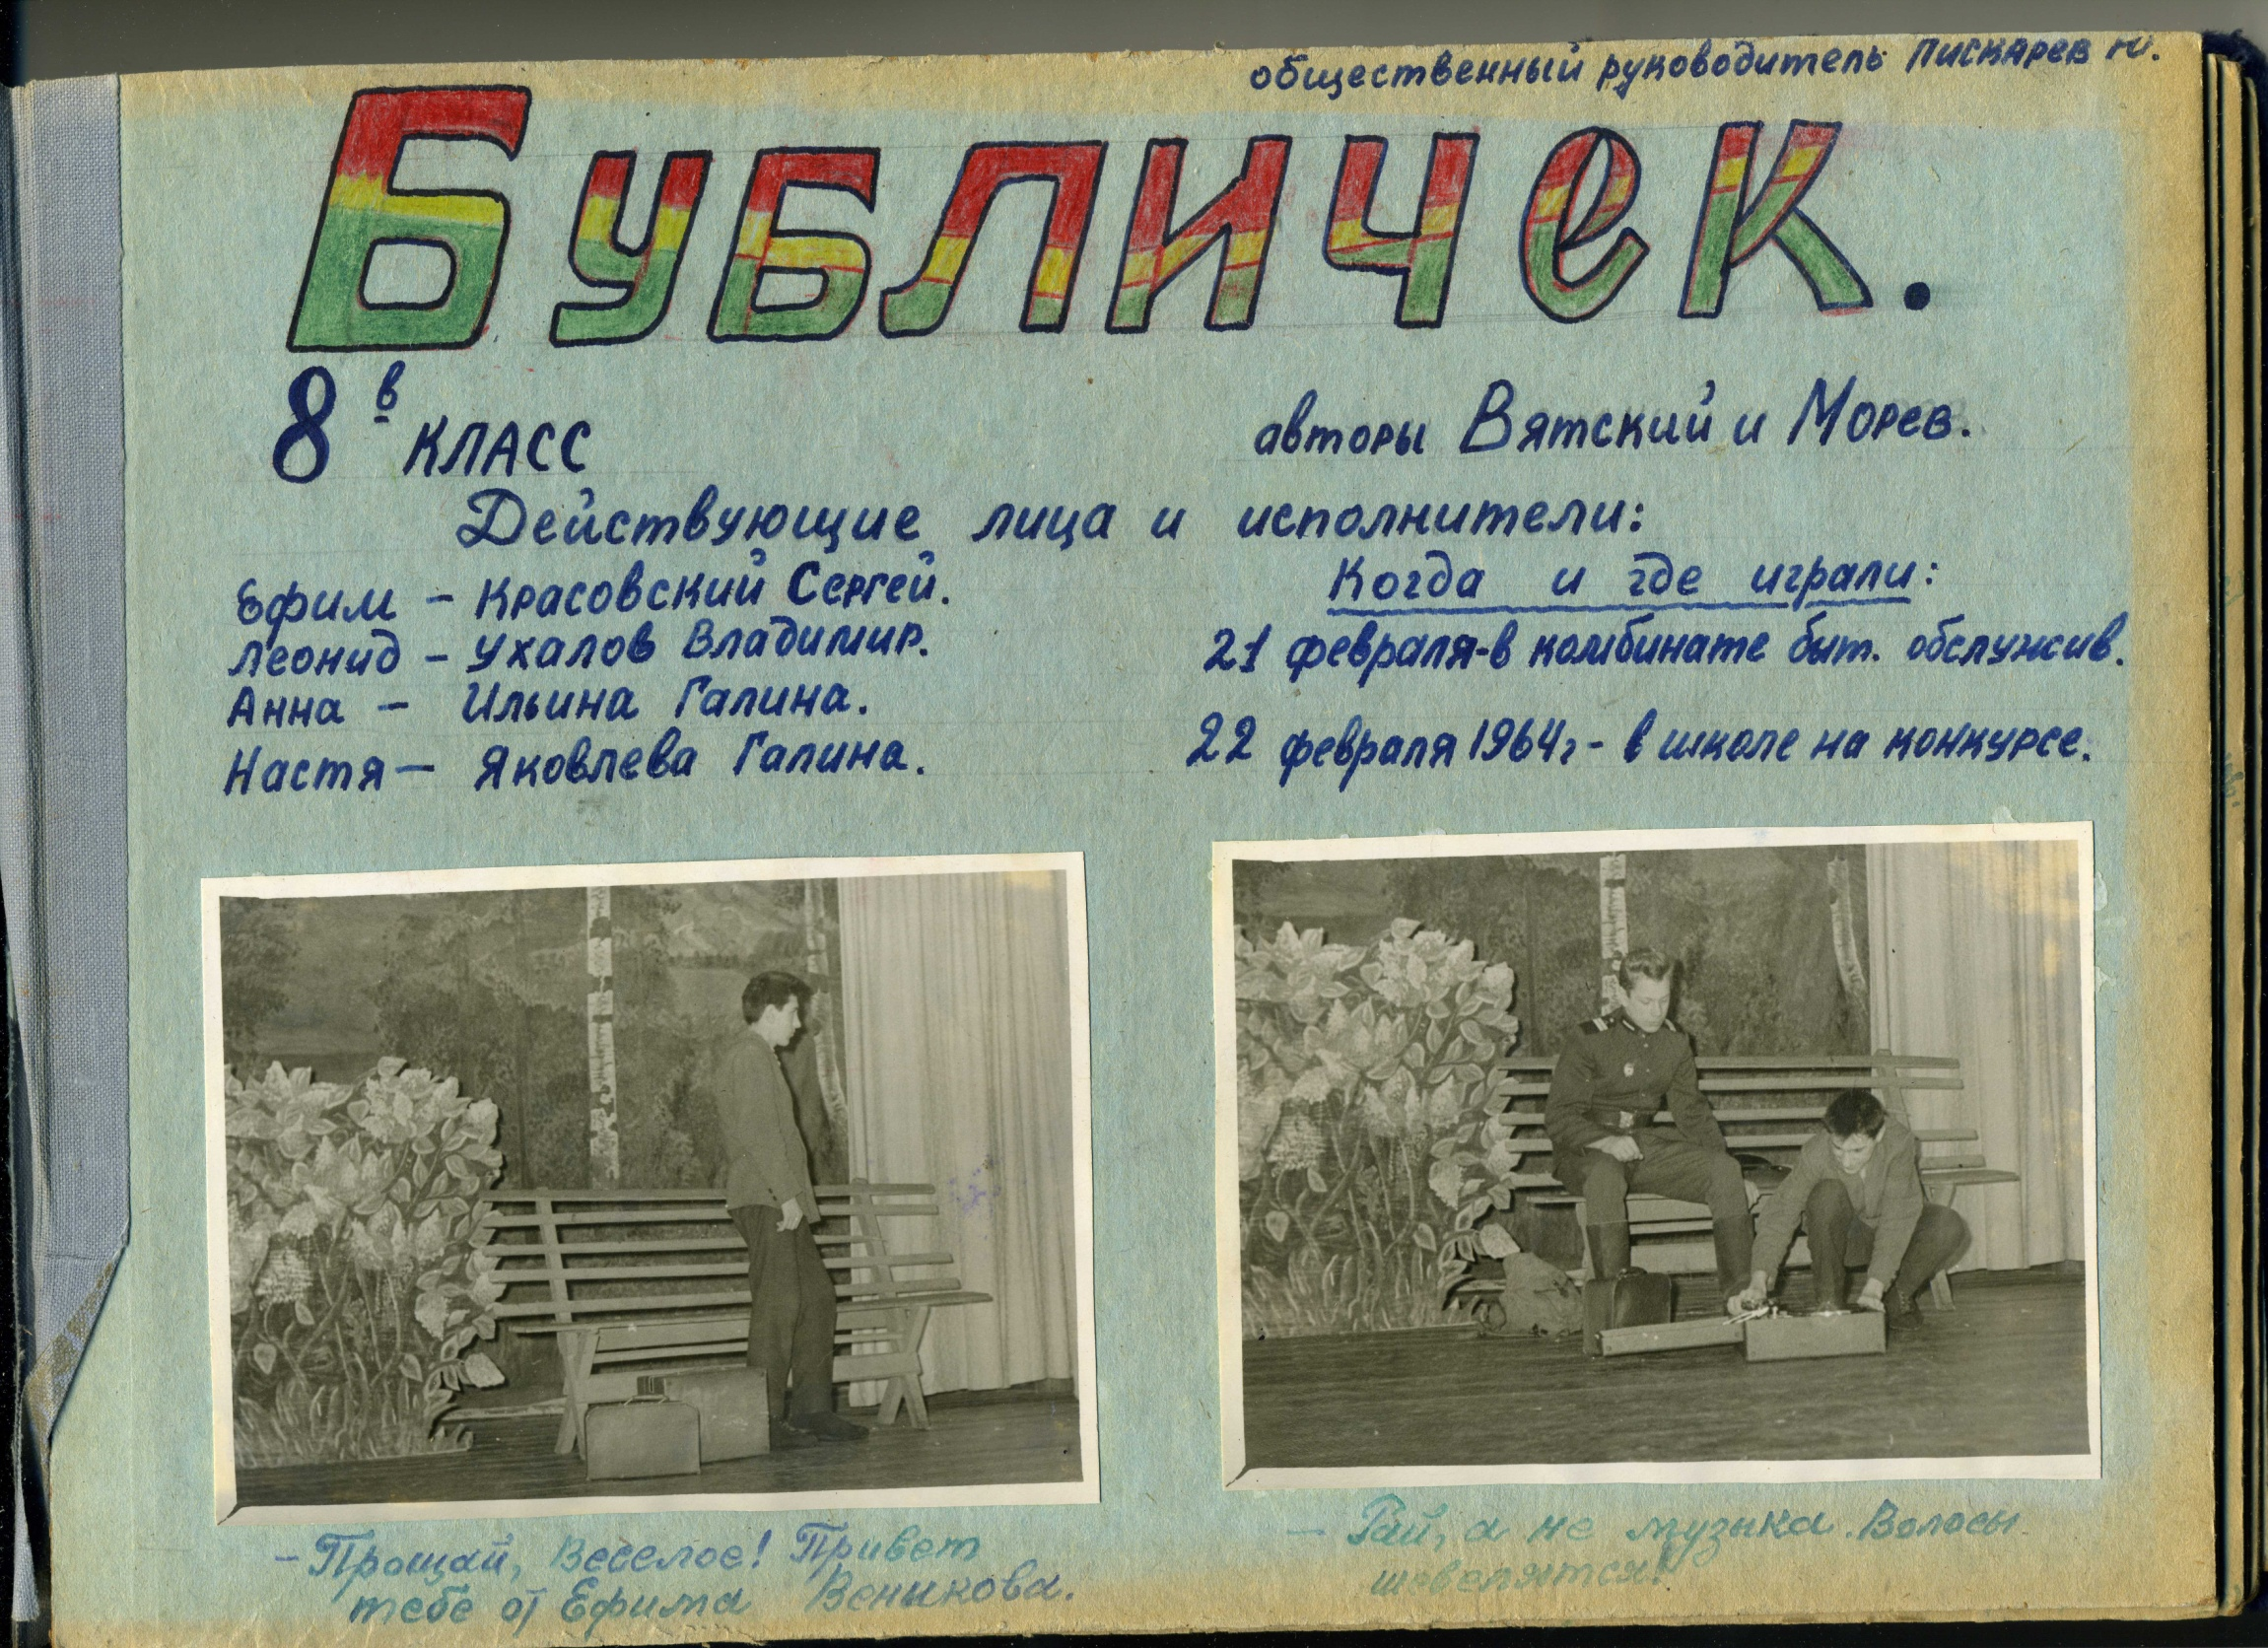 общественный руководитель Пискарев Ю.
Бубличек.
8 в класс
авторы Вятский и Морев.
Действующие лица и исполнители:
Ефим – Красовский Сергей.
Леонид – Ухалов Владимир.
Анна – Ильина Галина.
Настя – Яковлева Галина.
Когда и где играли:
21 февраля-в комбинате быт. обслужив.
22 февраля 1964г - в школе на конкурсе.
– Прощай, Веселое! Привет
тебе от Ефима Веникова.
– Рай, а не музыка. Волосы
шевелятся!